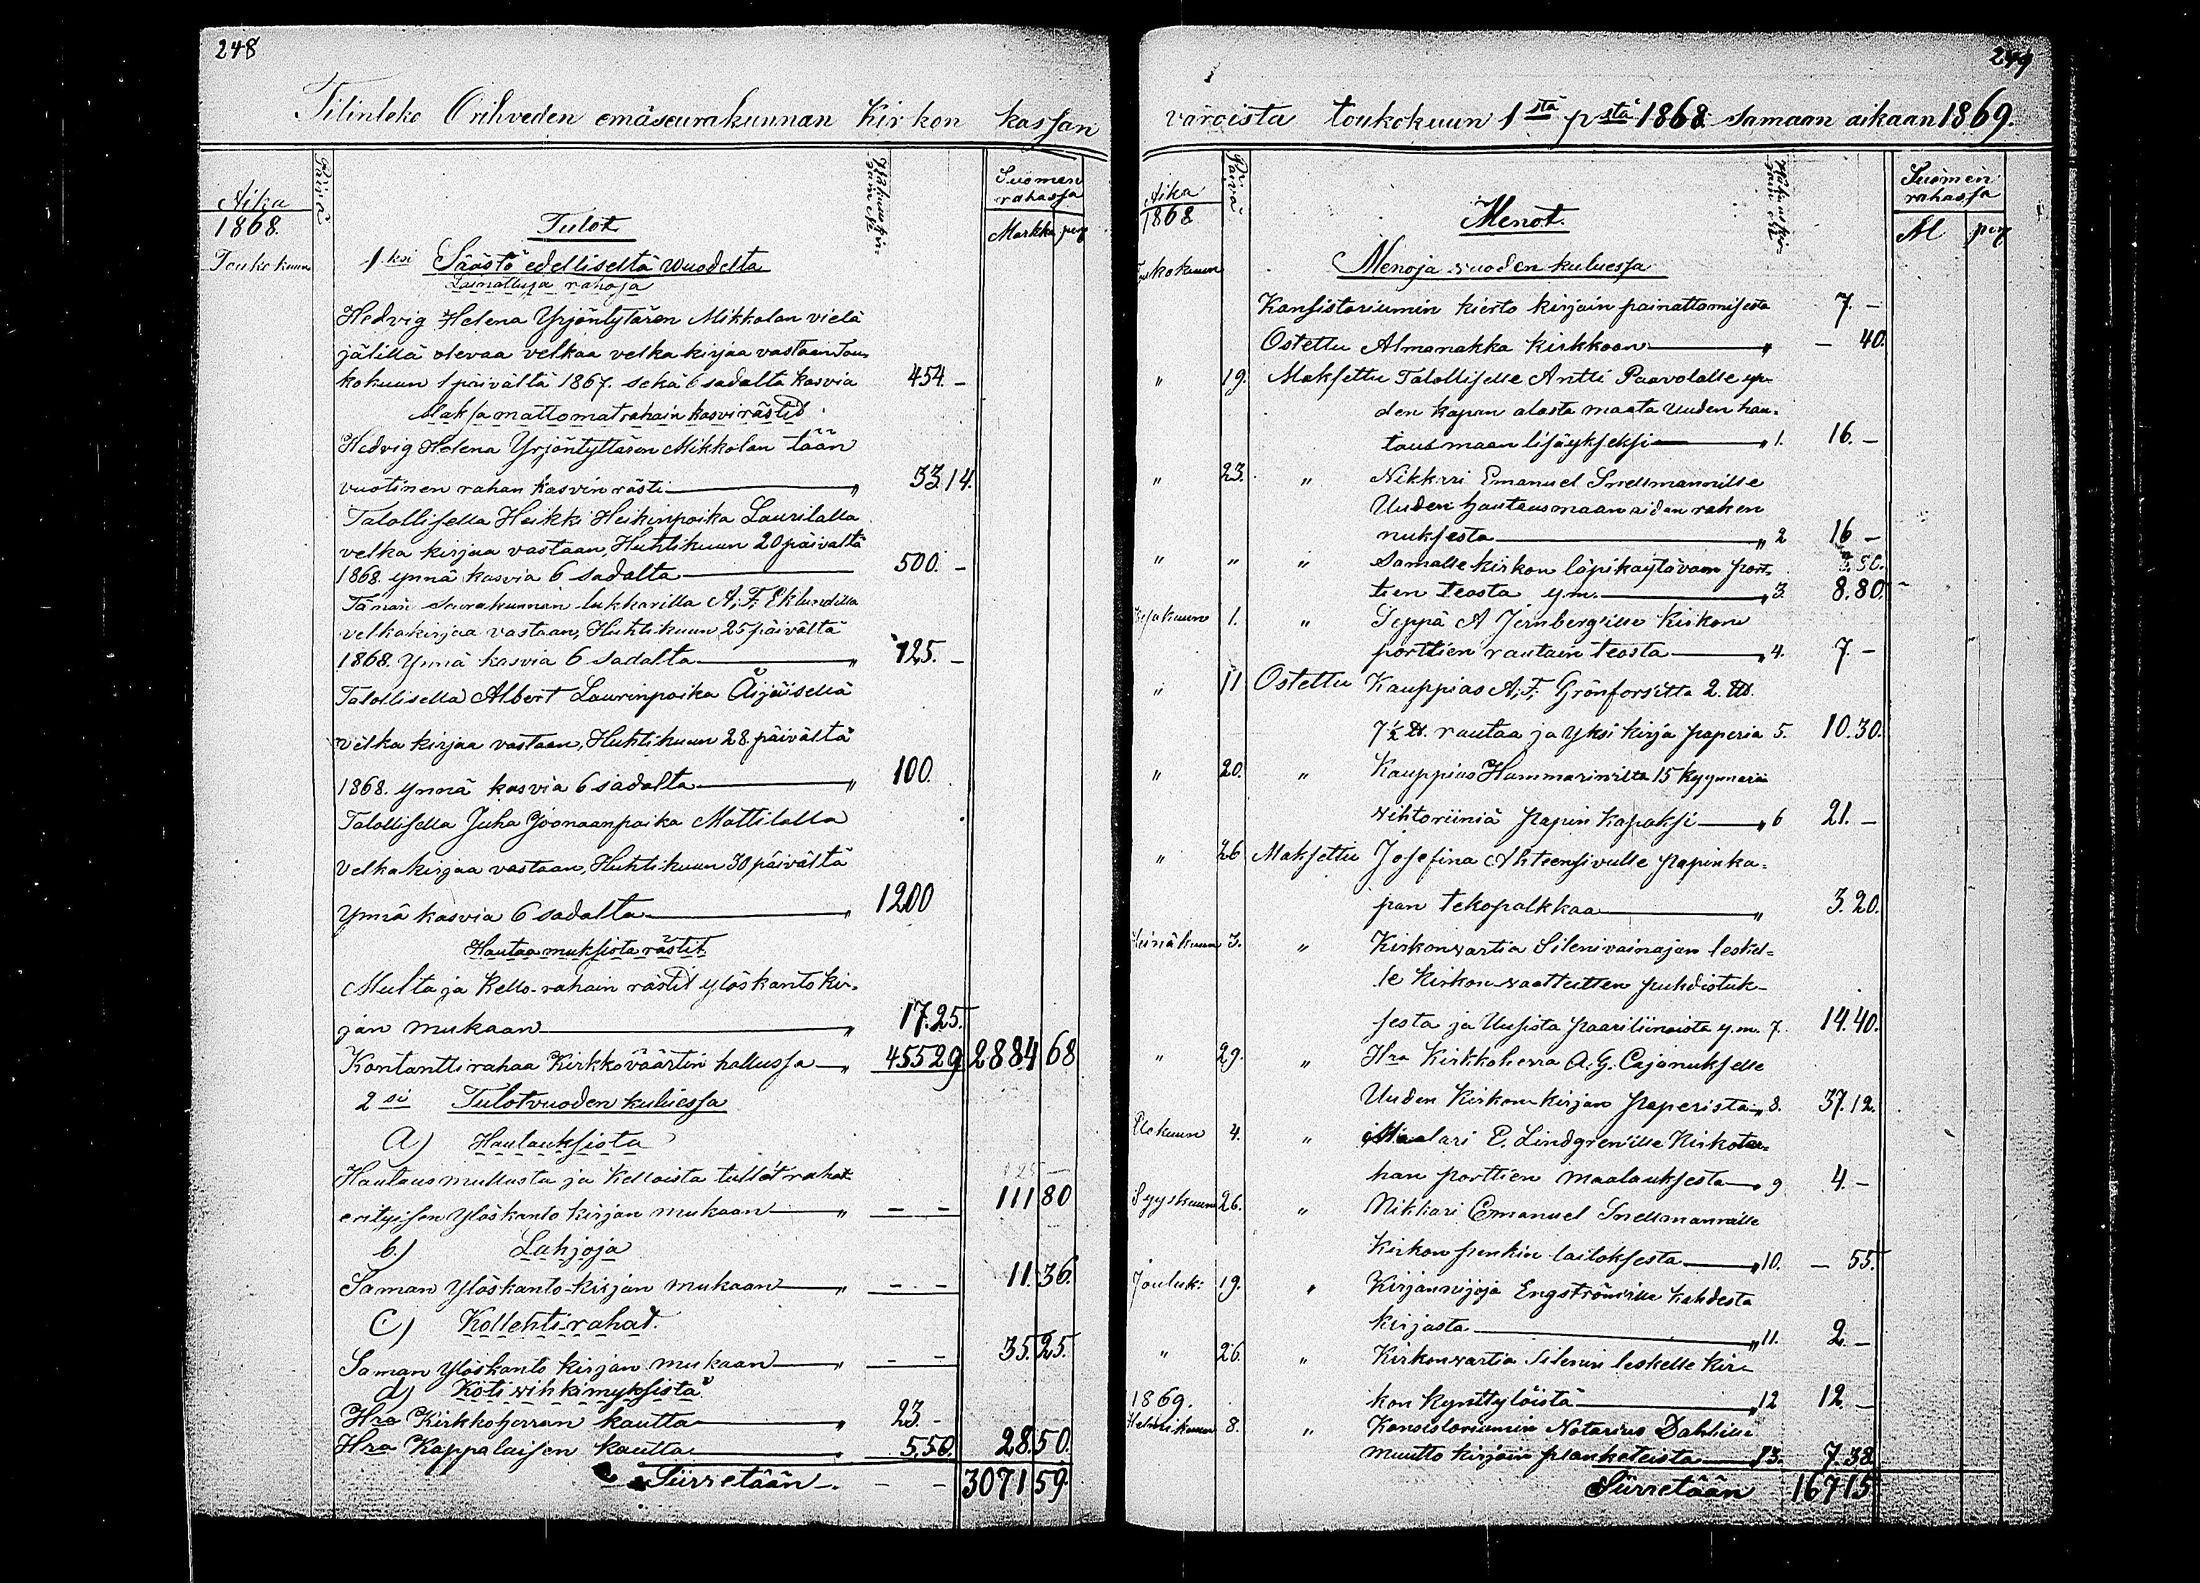 248
Tilinteko Orihveden emäseurakunnan Kirkon kassan
Aika
Päivä
Suomen
rahassa
1868.
Tulot
Markka pen
Toukokuun
1ksi Säästö edelliseltä wuodelta
Lainattuja rahoja
Hedvig Helena Yrjöntytären Mikkolan vielä
jälillä olevaa velkaa velkakirjaa vastaan Tou-
kokuun 1 päivältä 1867. sekä 6 sadalta kasvia 454. –
Maksamattomat rahain kasvirästid
Hedvig Helena Yrjöntyttären Mikkolan tään
vuotinen rahan kasvin rästi „ 33.14.
Talollisella Heikki Heikinpoika Laurilalla
velka kirjaa vastaan, Huhtikuun 20 päivältä
1868. ynnä kasvia 6 sadalta 500. –
Tämän seurakunnan lukkarilla A. F. Eklundilla
velkakirjaa vastaan, Huhtikuun 25 päivältä
1868. Ynnä kasvia 6 sadalta „ 125. –
Talollisella Albert Laurinpoika Äijäisellä
velka kirjaa vastaan, Huhtikuun 28. päivältä
1868. ynnä kasvia 6 sadalta „ 100.
Talollisella Juha Joonaanpoika Mattilalla
Velkakirjaa vastaan, Huhtikuun 30 päivältä
Ynnä kasvia 6 sadalta „ 1200
Hautaamuksista rästit.
Multa ja Kello-rahain rästid ylöskantokir-
jan mukaan „ 17.25.
Kontanttirahaa Kirkkoväärtin hallussa „ 455 29 2884 68
2si Tulot vuoden kuluessa
a) Hautauksista
Hautausmullasta ja Kelloista tullet rahat
erityisen Ylöskanto kirjan mukaan „ – – 111 80
b.) Lahjoja
Saman Ylöskanto-kirjan mukaan „ – – 11. 36.
C) Kollehti-rahat.
Saman Ylöskanto kirjan mukaan „ – – 35. 25.
d) Kotiwihkimyksistä
Hra Kirkkoherran kautta „ 23. –
Hra Kappalaisen kautta „ 5.50. 28. 50.
Siirretään – – – 3071 59.
249
varoista toukokuun 1stä pstä 1868 samaan aikaan 1869.
Aika
Päivä
Suomen
rahassa
1868
Menot.
M pen
Menoja vuoden kuluessa
Konsistoriumin kierto kirjain painattamisesta 7. –
Ostettu Almanakka Kirkkoon „ – 40.
„ 19. Maksettu Talolliselle Antti Paavolalle yh-
den kapan alasta maata Uuden hau-
tausmaan lisäykseksi „ 1. 16. –
„ 23. „ Nikkari Emanuel Snellmannille
Uuden hautausmaan aidan raken
nuksesta „ 2 16 –
„ „ „ Samalle kirkon läpikäytävain port-
tien teosta ym. „ 3. 8.80.
Kesäkuun 1. „ Seppä A Jernberg'ille Kirkon
porttien rautain teosta „ 4. 7. –
„ 11 Ostettu Kauppias A. F. Grönfors'itta 2. ℔.
7½ ℔. rautaa ja yksi kirja paperia 5. 10.30.
„ 20. „ Kauppias Hammarin'ilta 15 kyynärää
vihtoriiniä papin kapaksi „ 6 21. –
„ 26 Maksettu Josefina Ahteensivulle papinka-
pan tekopalkkaa „ 3.20.
Heinäkuun 3. „ Kirkonvartia Silenivainajan leskel-
le Kirkon-vaatteitten puhdistuk-
sesta ja Uusista paariliinoista y.m. 7. 14.40.
„ 29. „ Hra Kirkkoherra A. G. Cajanukselle
Uuden Kirkon-kirjan paperista „ 8. 37.12.
Elokuun 4. „ Maalari E. Lindgren'ille Kirkotar-
han porttien maalauksesta „ 9 4. –
Syyskuun 26. „ Nikkari Emanuel Snellmannille
Kirkon penkin laitoksesta „ 10. – 55.
Jouluk: 19. „ Kirjannijoja Engström'ille kahdesta
kirjasta „ 11. 2. –
„ 26. „ Kirkonvartia Silenin leskelle kir-
1869. kon kynttylöistä „ 12 12. –
Helmikuun 8. „ Konsistoriumin Notarius Dahlille
muutto kirjain planketeista 13. 7.38
Siirretään 167 15